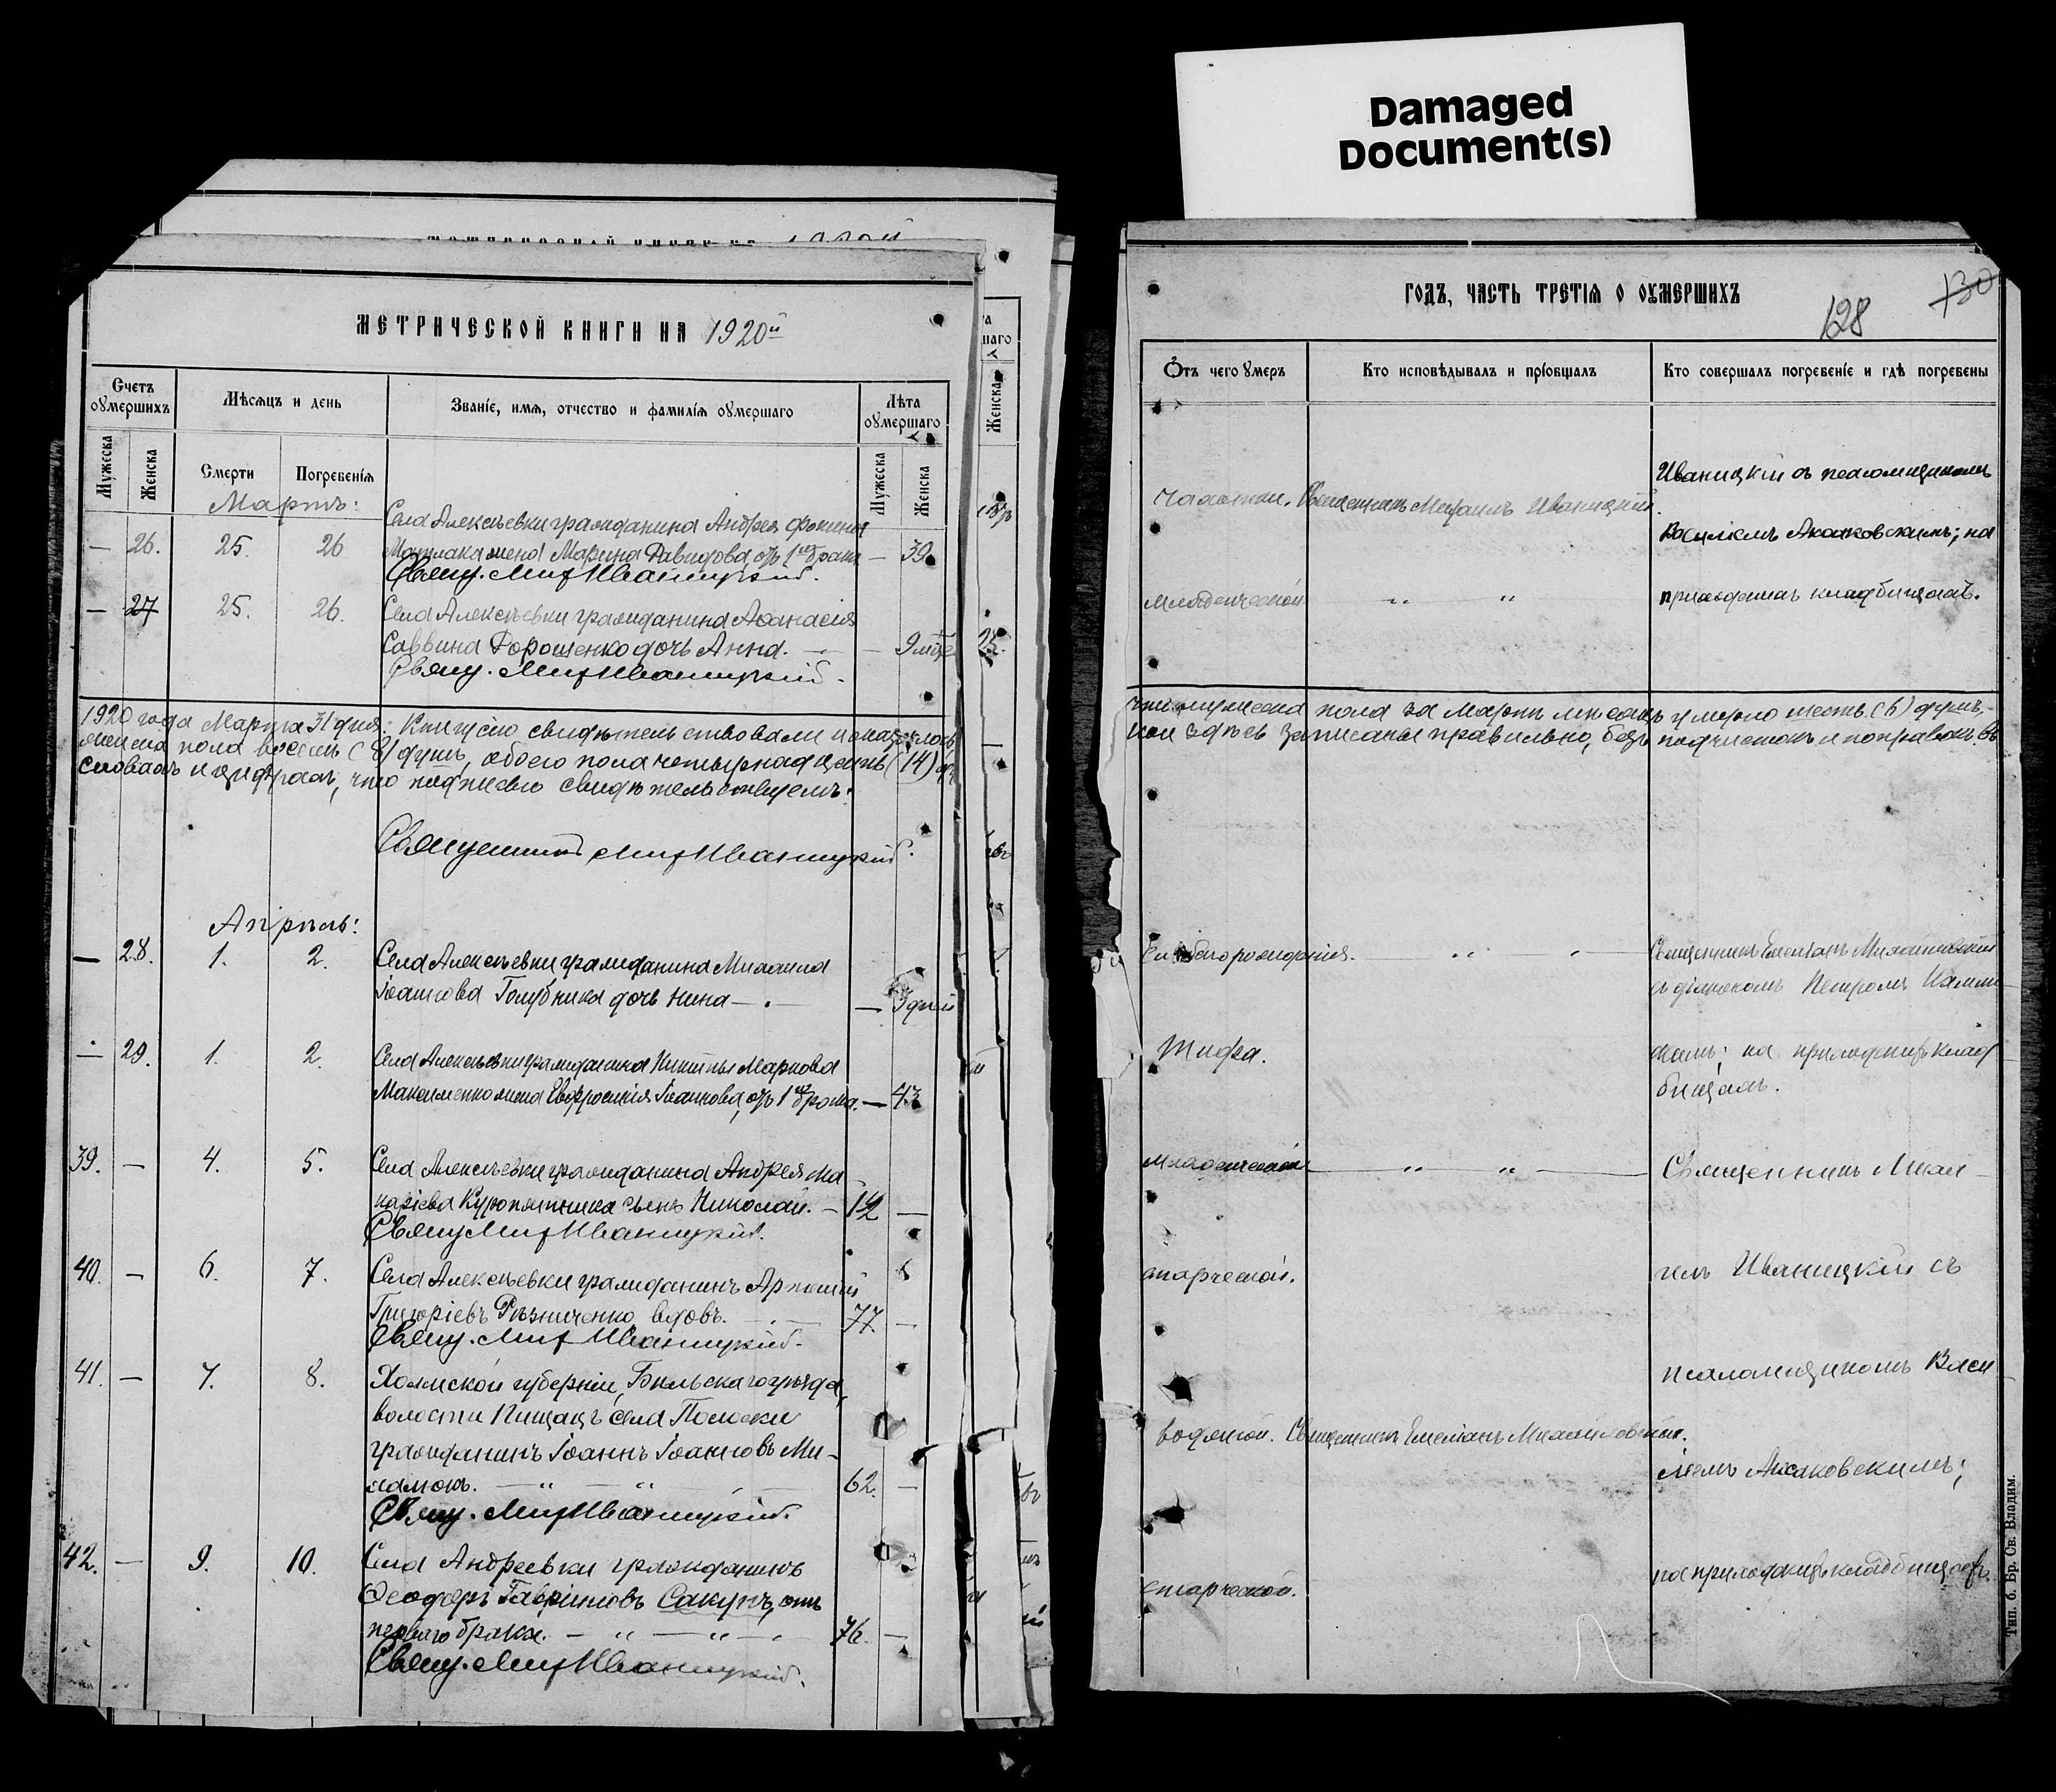 Damaged
Document(s)
МЕТРИЧЕСКОЙ КНИГИ НА 1920й
Счетъ оумершихъ
Мѣсяцъ и день
Званіе, имя, отчество и фамилія оумершаго
Лѣта оумершаго
Мужеска
Женска
Смерти
Погребенія
Мужеска
Женска
Мартъ:
Села Алексѣевки гражданина Андрея
— 26. 25. 26 жена Марина Давидова, отъ 1го брака — 39
Свящ. Мих Иваницкій.
— 27 25. 26. Села Алексѣевки гражданина Аѳанасія
Саввина Дорошенко дочь Анна. — 9 мѣс
Свящ. Мих Иваницкій.
1920 года Марта 31 дня: Книгу сію свидѣтельствовали и оказалось,
женска пола восемь (8) душъ, обоего пола четырнадцать (14)
словахъ и цифрахъ, что подписью свидѣтельствуемъ:
Священникъ Мих Иваницкій.
Апрѣль:
— 28. 1. 2. Села Алексѣевки гражданина Михаила
Іоаннова Голубника дочь Нина — дней
— 29. 1. 2. Села Алексѣевки гражданина Никиты Маркова
Максименко жена Евфросинія Іоаннова, отъ 1го брака. — 43
39. — 4. 5. Села Алексѣевки гражданина Андрея Ма
каріева сынъ Николай. —
Свящ Мих Иваницкій.
40. — 6. 7. Села Алексѣевки гражданинъ
Григоріевъ Рѣзниченко, вдовъ. 77. —
Свящ. Мих Иваницкій.
41. — 7. 8. Холмской губерніи, Бѣльскаго уѣзда,
волости Пищацъ села Полоски
гражданинъ Іоаннъ Іоанновъ Ми-
62. —
Свящ. Мих Иваницкій.
42. — 9. 10. Села Андреевки гражданинъ
Ѳеодоръ Гавріиловъ Сакунъ, отъ
перваго брака. 76. —
Свящ. Мих Иваницкій.
ГОДЪ, ЧАСТЬ ТРЕТІЯ О ОУМЕРШИХЪ
128
130
Отъ чего умеръ
Кто исповѣдывалъ и пріобщалъ
Кто совершалъ погребеніе и гдѣ погребены
Иваницкій съ псаломщикомъ
чахотки. Священникъ Михаилъ Иваницкій.
Василіемъ на
младенческой " "
приходскомъ кладбищахъ.
что мужеска пола за Мартъ мѣсяцъ умерло шесть (6) душъ,
кои здѣсь записаны правильно, безъ подчистокъ и поправокъ въ
слабого рожденія. Священникъ Емеліанъ Михайловскій
съ діакономъ Петромъ
Тифа.
на приходскихъ клад
бищахъ.
младенческой " " Священникъ Миха
старческой.
илъ Иваницкій съ
псаломщикомъ Васи
водянкой. Священникъ Емеліанъ Михайловскій.
ліемъ
на приходскихъ кладбищахъ.
старческой.
Тип. б. Бр. Св. Владим.